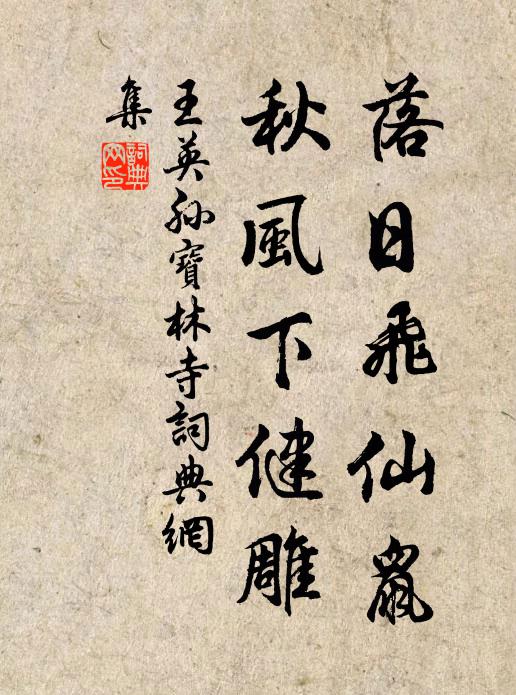 落日飛仙鼠
秋風下健雕
王英孫寶林寺詞典網
集
詞典網印